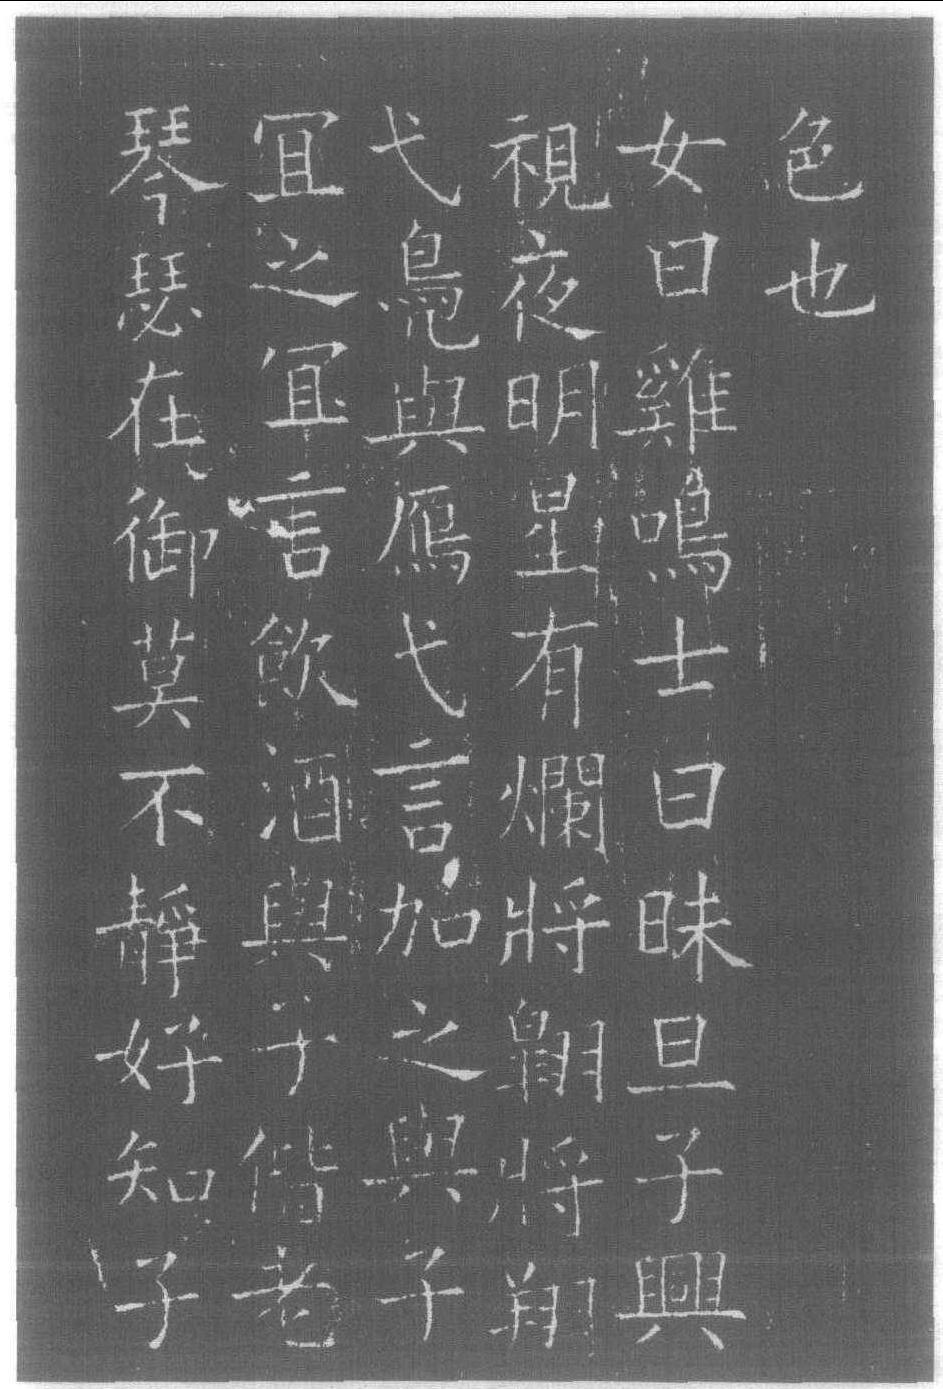 色也
女曰雞鳴士曰昧旦子興
視夜明星有爛將翺將翔
弋鳧與鴈弋言加之與子
冝之冝言飲酒與子偕老
琴瑟在御莫不靜好知子